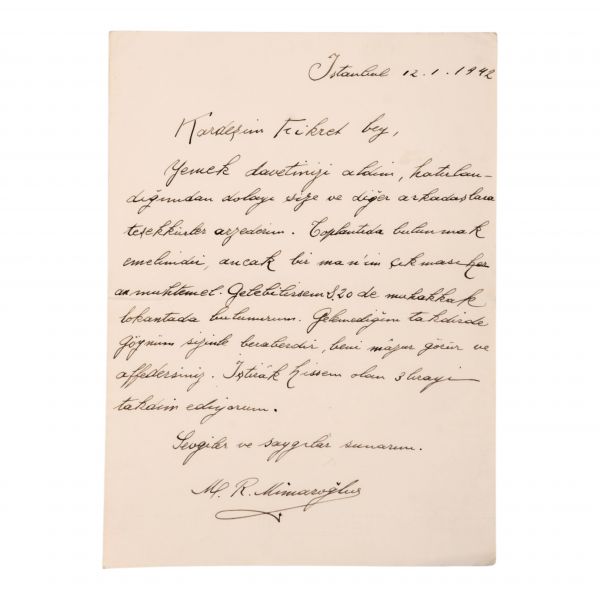 İstanbul 12.1.1942
Kardeşim Fikret bey,
Yemek davetinizi aldım, hatırlan-
dığımdan dolayı size ve diğer arkadaşlara
teşekkürler arzederim. Toplantıda bulunmak
emelimdir, ancak bir mani'in çıkması her
an muhtemel. Gelebilirsem 8,20 de muhakkak
lokantada bulunurum. Gelmediğim takdirde
göynüm sizinle beraberdir, beni mâzur görür ve
affedersiniz. İştirâk hissem olan 3 lirayı
takdim ediyorum.
Sevgiler ve saygılar sunarım.
M. R. Mimaroğlu